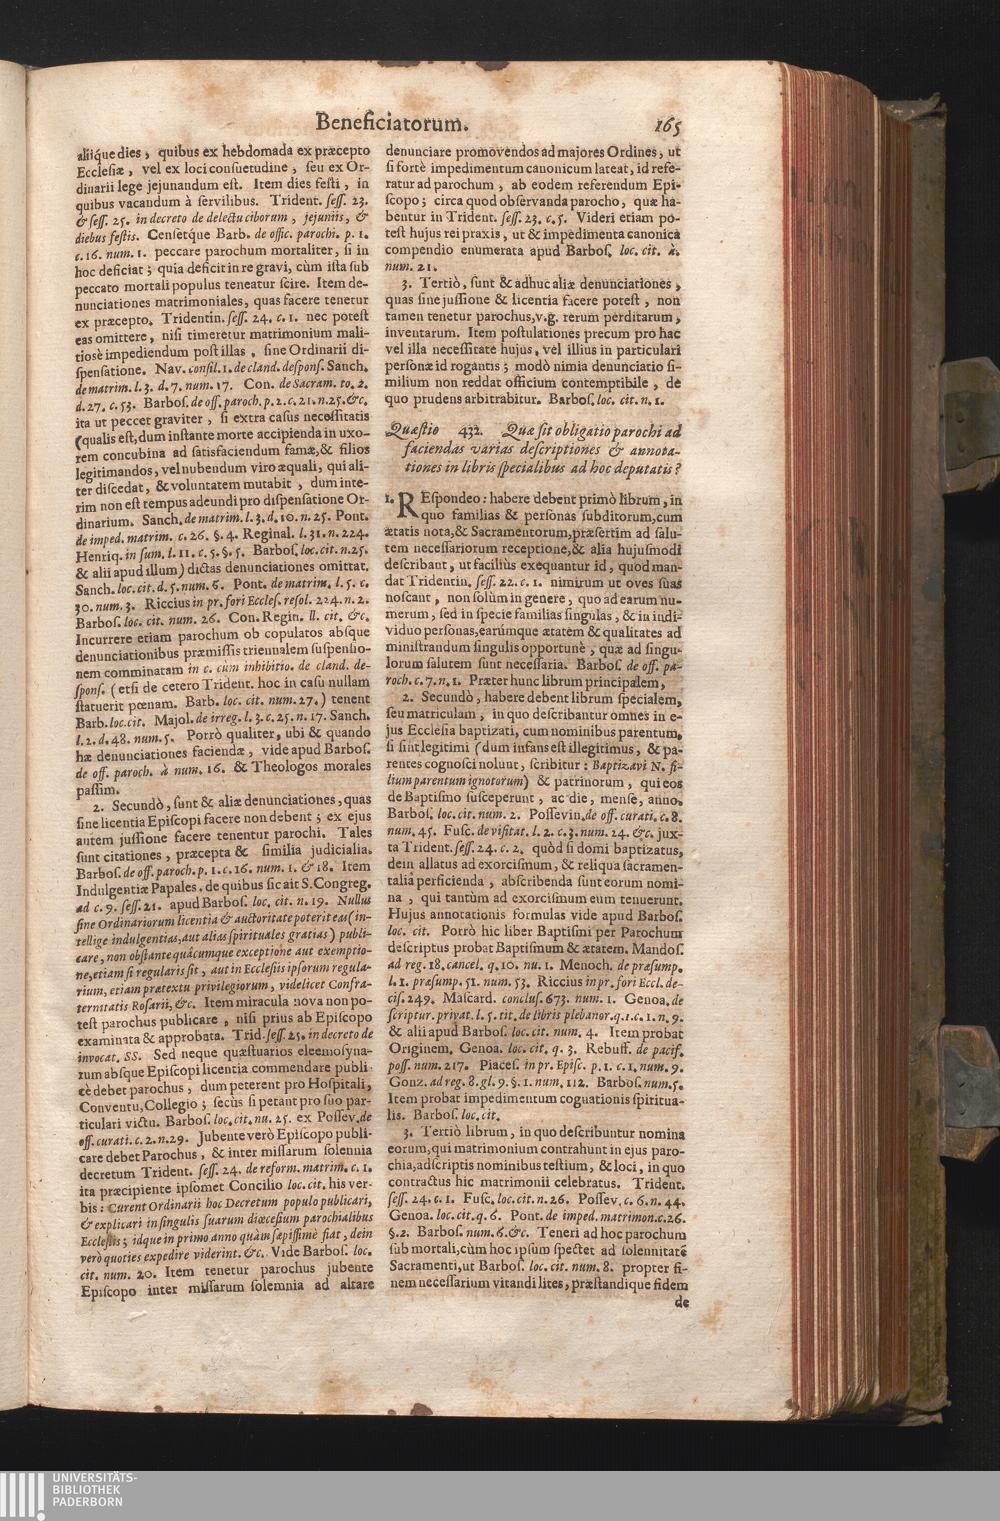 Beneficiatorum. 165
aliíque dies, quibus ex hebdomada ex præcepto
Ecclesiæ, vel ex loci consuetudine, seu ex Or-
dinarii lege jejunandum est. Item dies festi, in
quibus vacandum à servilibus. Trident. sess. 23.
& sess. 25. in decreto de delectu ciborum, jejuniis, &
diebus festis. Censétque Barb. de offic. parochi. p. 1.
c. 16. num. 1. peccare parochum mortaliter, si in
hoc deficiat; quia deficit in re gravi, cùm ista sub
peccato mortali populus teneatur scire. Item de-
nunciationes matrimoniales, quas facere tenetur
ex præcepto. Tridentin. sess. 24. c. 1. nec potest
eas omittere, nisi timeretur matrimonium mali-
tiosè impediendum post illas, sine Ordinarii di-
spensatione. Nav. consil. 1. de cland. despons. Sanch.
de matrim. l. 3. d. 7. num. 17. Con. de Sacram. to. 2.
d. 27. c. 53. Barbos. de off. paroch. p. 2. c. 21. n. 25. &c.
ita ut peccet graviter, si extra casus necessitatis
(qualis est, dum instante morte accipienda in uxo-
rem concubina ad satisfaciendum famæ, & filios
legitimandos, vel nubendum viro æquali, qui ali-
ter discedat, & voluntatem mutabit, dum inte-
rim non est tempus adeundi pro dispensatione Or-
dinarium. Sanch. de matrim. l. 3. d. 10. n. 25. Pont.
de imped. matrim. c. 26. §. 4. Reginal. l. 31. n. 224.
Henriq. in sum. l. 11. c. 5. §. 5. Barbos. loc. cit. n. 25.
& alii apud illum) dictas denunciationes omittat.
Sanch. loc. cit. d. 5. num. 6. Pont. de matrim. l. 5. c.
30. num. 3. Riccius in pr. fori Eccles. resol. 224. n. 2.
Barbos. loc. cit. num. 26. Con. Regin. ll. cit. &c.
Incurrere etiam parochum ob copulatos absque
denunciationibus præmissis triennalem suspensio-
nem comminatam in c. cùm inhibitio. de cland. de-
spons. (etsi de cetero Trident. hoc in casu nullam
statuerit pœnam. Barb. loc. cit. num. 27.) tenent
Barb. loc. cit. Majol. de irreg. l. 3. c. 25. n. 17. Sanch.
l. 2. d. 48. num. 5. Porrò qualiter, ubi & quando
hæ denunciationes faciendæ, vide apud Barbos.
de off. paroch. à num. 16. & Theologos morales
passim.
2. Secundò, sunt & aliæ denunciationes, quas
sine licentia Episcopi facere non debent; ex ejus
autem jussione facere tenentur parochi. Tales
sunt citationes, præcepta & similia judicialia.
Barbos. de off. paroch. p. 1. c. 16. num. 1. & 18. Item
Indulgentiæ Papales. de quibus sic ait S. Congreg.
ad c. 9. sess. 21. apud Barbos. loc. cit. n. 19. Nullus
sine Ordinariorum licentia & auctoritate poterit eas (in-
tellige indulgentias, aut alias spirituales gratias) publi-
care, non obstante quâcumque exceptione aut exemptio-
ne, etiam si regularis sit, aut in Ecclesiis ipsorum regula-
rium, etiam prætextu privilegiorum, videlicet Confra-
ternitatis Rosarii, &c. Item miracula nova non po-
test parochus publicare, nisi prius ab Episcopo
examinata & approbata. Trid. sess. 25. in decreto de
invocat. SS. Sed neque quæstuarios eleemosyna-
rum absque Episcopi licentia commendare publi-
cè debet parochus, dum peterent pro Hospitali,
Conventu, Collegio; secùs si petant pro suo par-
ticulari victu. Barbos. loc. cit. nu. 25. ex Possev. de
off. curati. c. 2. n. 29. Jubente verò Episcopo publi-
care debet Parochus, & inter missarum solennia
decretum Trident. sess. 24. de reform. matrim. c. 1.
ita præcipiente ipsomet Concilio loc. cit. his ver-
bis: Curent Ordinarii hoc Decretum populo publicari,
& explicari in singulis suarum diœcesium parochialibus
Ecclesiis; idque in primo anno quàm sæpissimè fiat, dein
verò quoties expedire viderint. &c. Vide Barbos. loc.
cit. num. 20. Item tenetur parochus jubente
Episcopo inter missarum solemnia ad altare
denunciare promovendos ad majores Ordines, ut
si fortè impedimentum canonicum lateat, id refe-
ratur ad parochum, ab eodem referendum Epi-
scopo; circa quod observanda parocho, quæ ha-
bentur in Trident. sess. 23. c. 5. Videri etiam po-
test hujus rei praxis, ut & impedimenta canonica
compendio enumerata apud Barbos. loc. cit. à.
num. 21.
3. Tertiò, sunt & adhuc aliæ denunciationes,
quas sine jussione & licentia facere potest, non
tamen tenetur parochus, v.g. rerum perditarum,
inventarum. Item postulationes precum pro hac
vel illa necessitate hujus, vel illius in particulari
personæ id rogantis; modò nimia denunciatio si-
milium non reddat officium contemptibile, de
quo prudens arbitrabitur. Barbos. loc. cit. n. 1.
Quæstio 432. Quæ sit obligatio parochi ad
faciendas varias descriptiones & annota-
tiones in libris specialibus ad hoc deputatis?
1. REspondeo: habere debent primò librum, in
quo familias & personas subditorum, cum
ætatis nota, & Sacramentorum, præsertim ad salu-
tem necessariorum receptione, & alia hujusmodi
describant, ut faciliùs exequantur id, quod man-
dat Tridentin. sess. 22. c. 1. nimirum ut oves suas
noscant, non solùm in genere, quo ad earum nu-
merum, sed in specie familias singulas, & in indi-
viduo personas, earúmque ætatem & qualitates ad
ministrandum singulis opportunè, quæ ad singu-
lorum salutem sunt necessaria. Barbos. de off. pa-
roch. c. 7. n. 1. Præter hunc librum principalem,
2. Secundò, habere debent librum specialem,
seu matriculam, in quo describantur omnes in e-
jus Ecclesia baptizati, cum nominibus parentum,
si sint legitimi (dum infans est illegitimus, & pa-
rentes cognosci nolunt, scribitur: Baptizavi N. fi-
lium parentum ignotorum) & patrinorum, qui eos
de Baptismo susceperunt, ac die, mense, anno.
Barbos. loc. cit. num. 2. Possevin. de off. curati. c. 8.
num. 45. Fusc. de visitat. l. 2. c. 3. num. 24. &c. jux-
ta Trident. sess. 24. c. 2. quòd si domi baptizatus,
dein allatus ad exorcismum, & reliqua sacramen-
talia perficienda, abscribenda sunt eorum nomi-
na, qui tantùm ad exorcismum eum tenuerunt.
Hujus annotationis formulas vide apud Barbos.
loc. cit. Porrò hic liber Baptismi per Parochum
descriptus probat Baptismum & ætatem. Mandos.
ad reg. 18. cancel. q. 10. nu. 1. Menoch. de præsump.
l. 1. præsump. 51. num. 53. Riccius in pr. fori Eccl. de-
cis. 249. Mascard. conclus. 673. num. 1. Genoa. de
scriptur. privat. l. 5. tit. de libris plebanor. q. 1. c. 1. n. 9.
& alii apud Barbos. loc. cit. num. 4. Item probat
Originem. Genoa. loc. cit. q. 3. Rebuff. de pacif.
poss. num. 217. Piaces. in pr. Episc. p. 1. c. 1. num. 9.
Gonz. ad reg. 8. gl. 9. §. 1. num. 112. Barbos. num. 5.
Item probat impedimentum cognationis spiritua-
lis. Barbos. loc. cit.
3. Tertiò librum, in quo describuntur nomina
eorum, qui matrimonium contrahunt in ejus paro-
chia, adscriptis nominibus testium, & loci, in quo
contractus hic matrimonii celebratus. Trident.
sess. 24. c. 1. Fusc. loc. cit. n. 26. Possev. c. 6. n. 44.
Genoa. loc. cit. q. 6. Pont. de imped. matrimon. c. 26.
§. 2. Barbos. num. 6. &c. Teneri ad hoc parochum
sub mortali, cùm hoc ipsum spectet ad solennitatē
Sacramenti, ut Barbos. loc. cit. num. 8. propter fi-
nem necessarium vitandi lites, præstandique fidem
de
UNIVERSITÄTS-
BIBLIOTHEK
PADERBORN